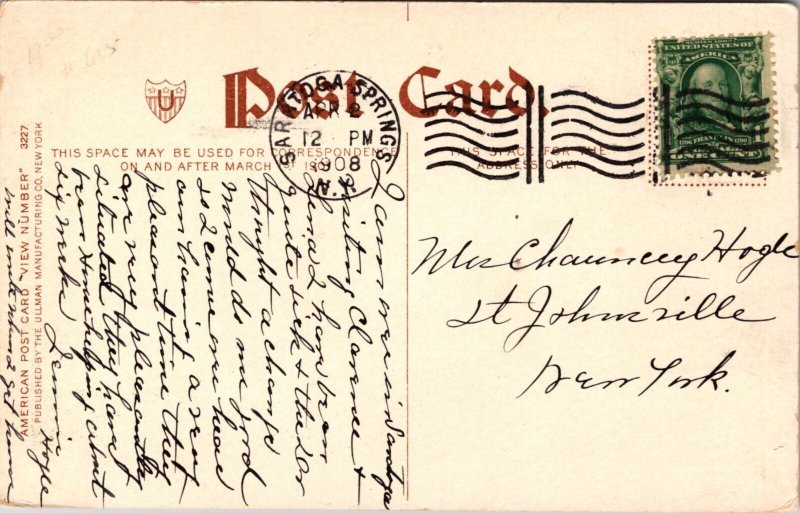 Post Card
U
THIS SPACE MAY BE USED FOR CORRESPONDENCE
ON AND AFTER MARCH 1st
THIS SPACE FOR THE
ADDRESS ONLY
SARATOGA SPRINGS
APR 2
12 PM
1908
N.
SERIES 1902
UNITED STATES OF
AMERICA
FRANKLIN
ONE CENT
Mrs Chauncey Hogle
St Johnsville
New York.
I am now in Saratoga
visiting Clarence &
I have been
quite sick & the Dr
thought a change
would do me good
so I came over here
am having a very
pleasant time they
are very pleasantly
situated they havent
been house keeping about
six weeks
Hogle
will write when I get home
AMERICAN POST CARD "VIEW NUMBER" 3227
PUBLISHED BY THE ULLMAN MANUFACTURING CO. NEW YORK